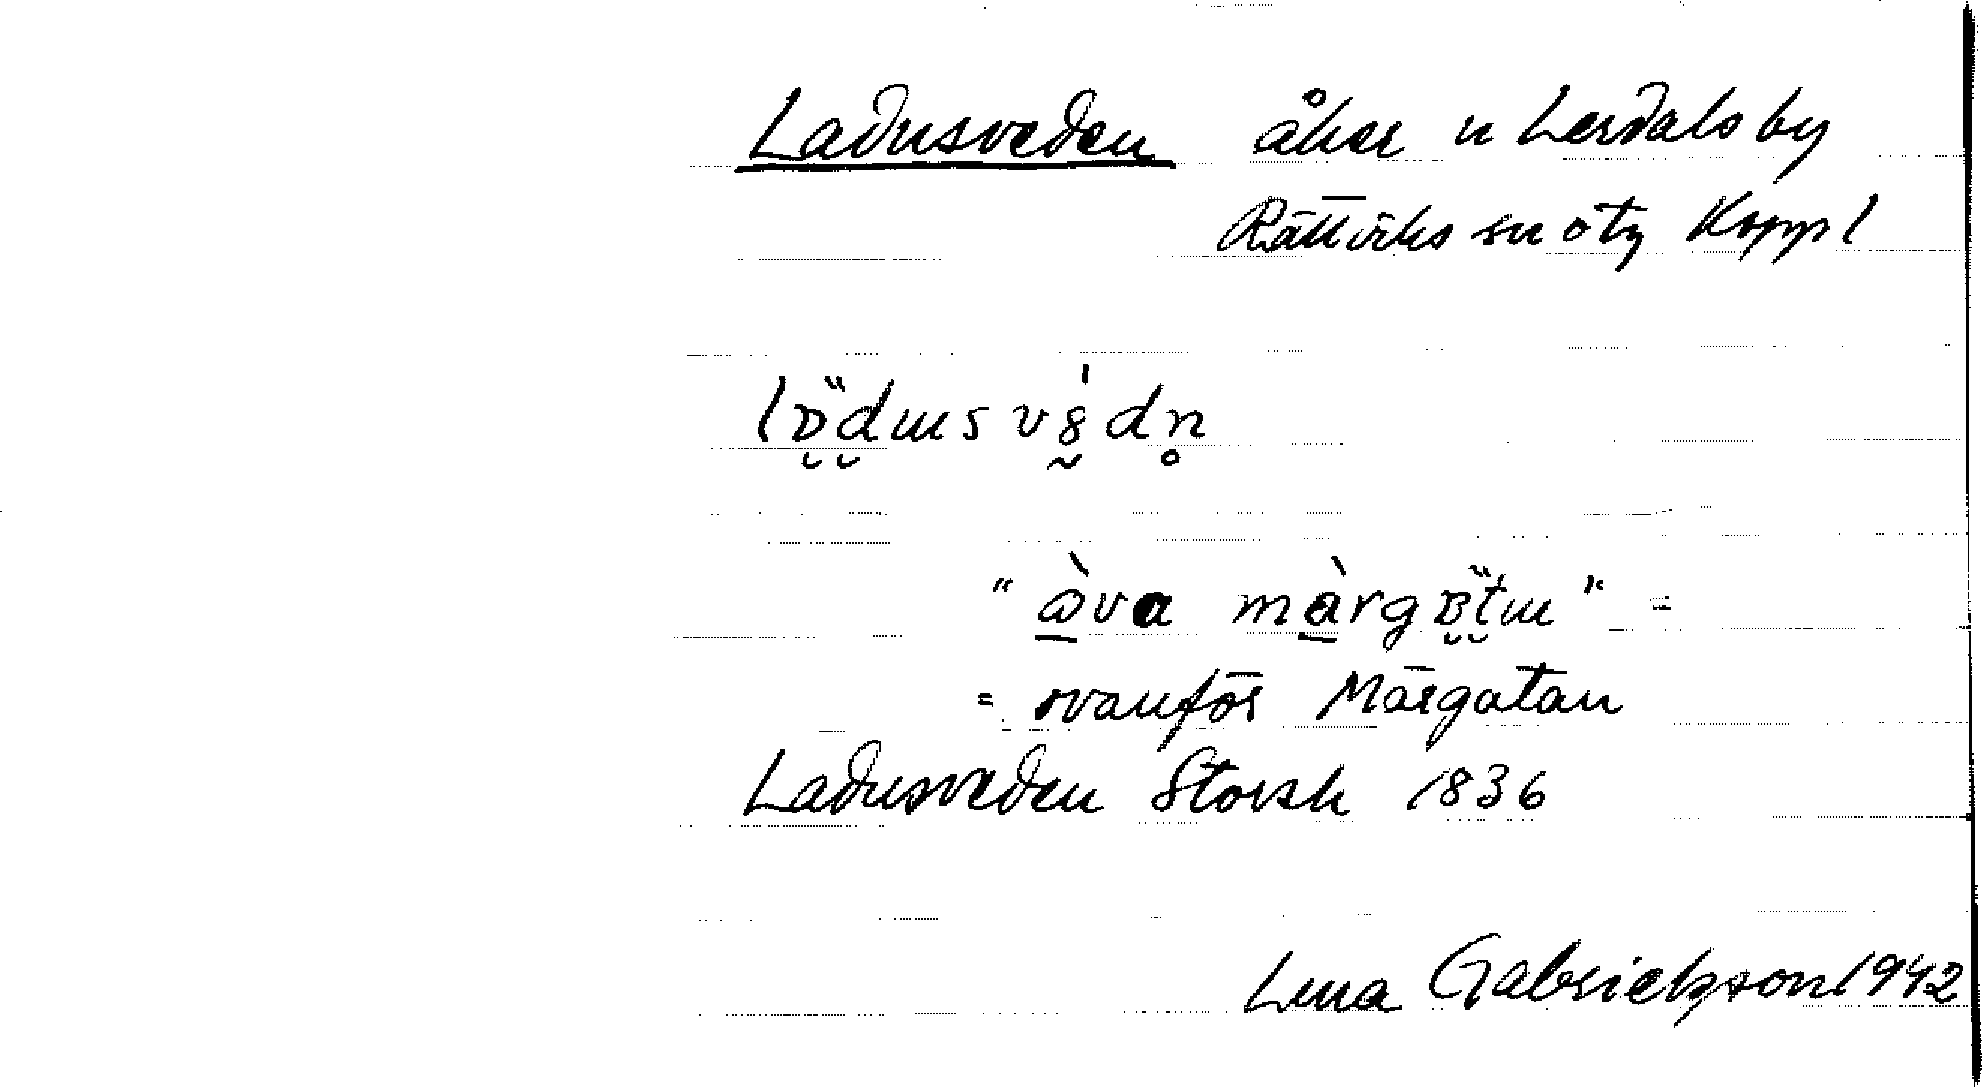 Ladusveden åker n Lerdals by
Rättviks sn ötg Koppl
"  " =
= ovanför Mårgatan
Ladusveden Storsk 1836
Lena Gabrielsson 1942